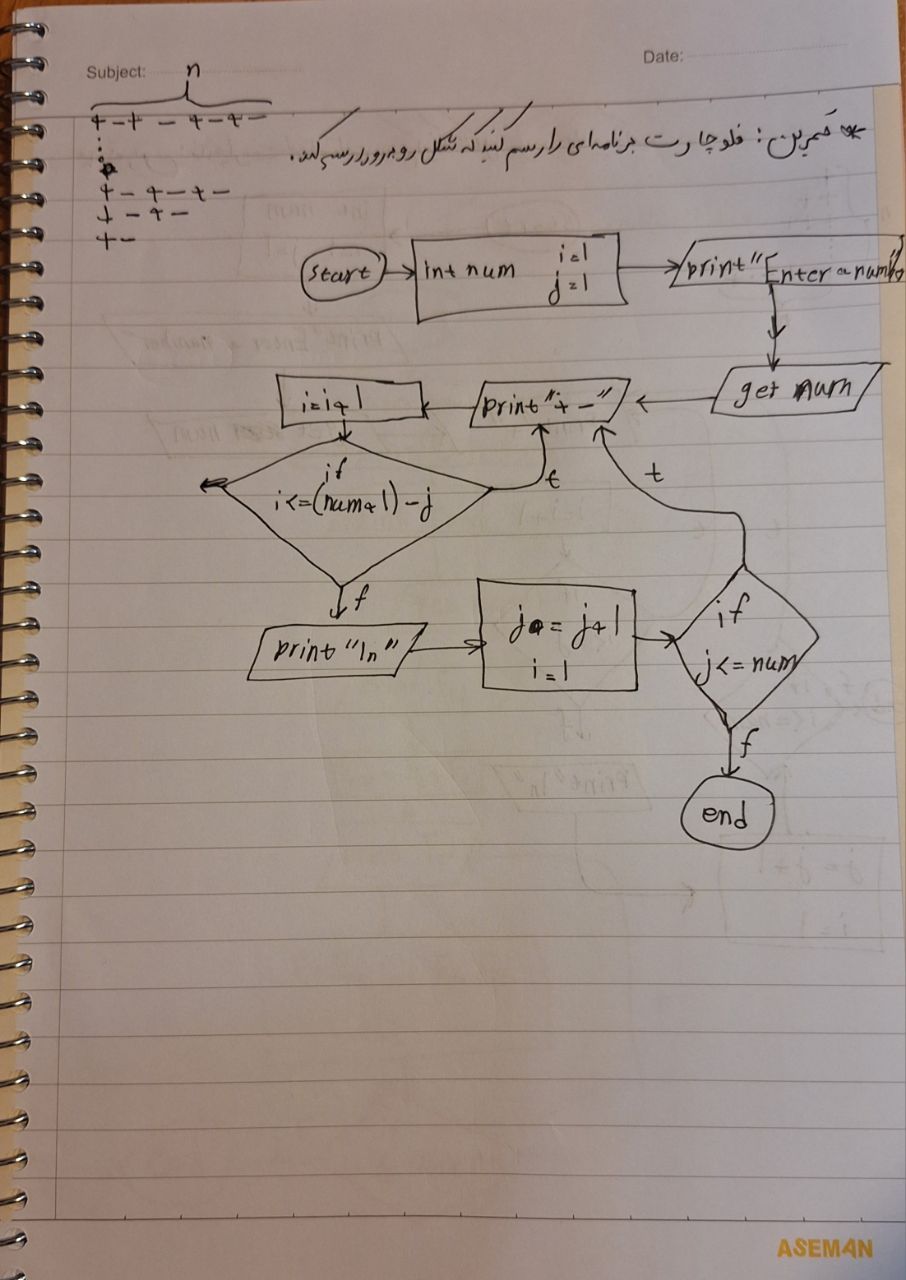 Subject:
n
Date:
+ - + - + - + -
* تمرین : فلوچارت برنامه‌ای را رسم کنید که شکل روبه‌رو را رسم کند.
+ - + - + -
+ - + -
+ -
start
int num i=1
j=1
print "Enter a num"
get num
print "+ -"
i=i+1
if
i<=(num+1)-j
t
t
f
print "\n"
j = j+1
i=1
if
j<= num
f
end
ASEMAN